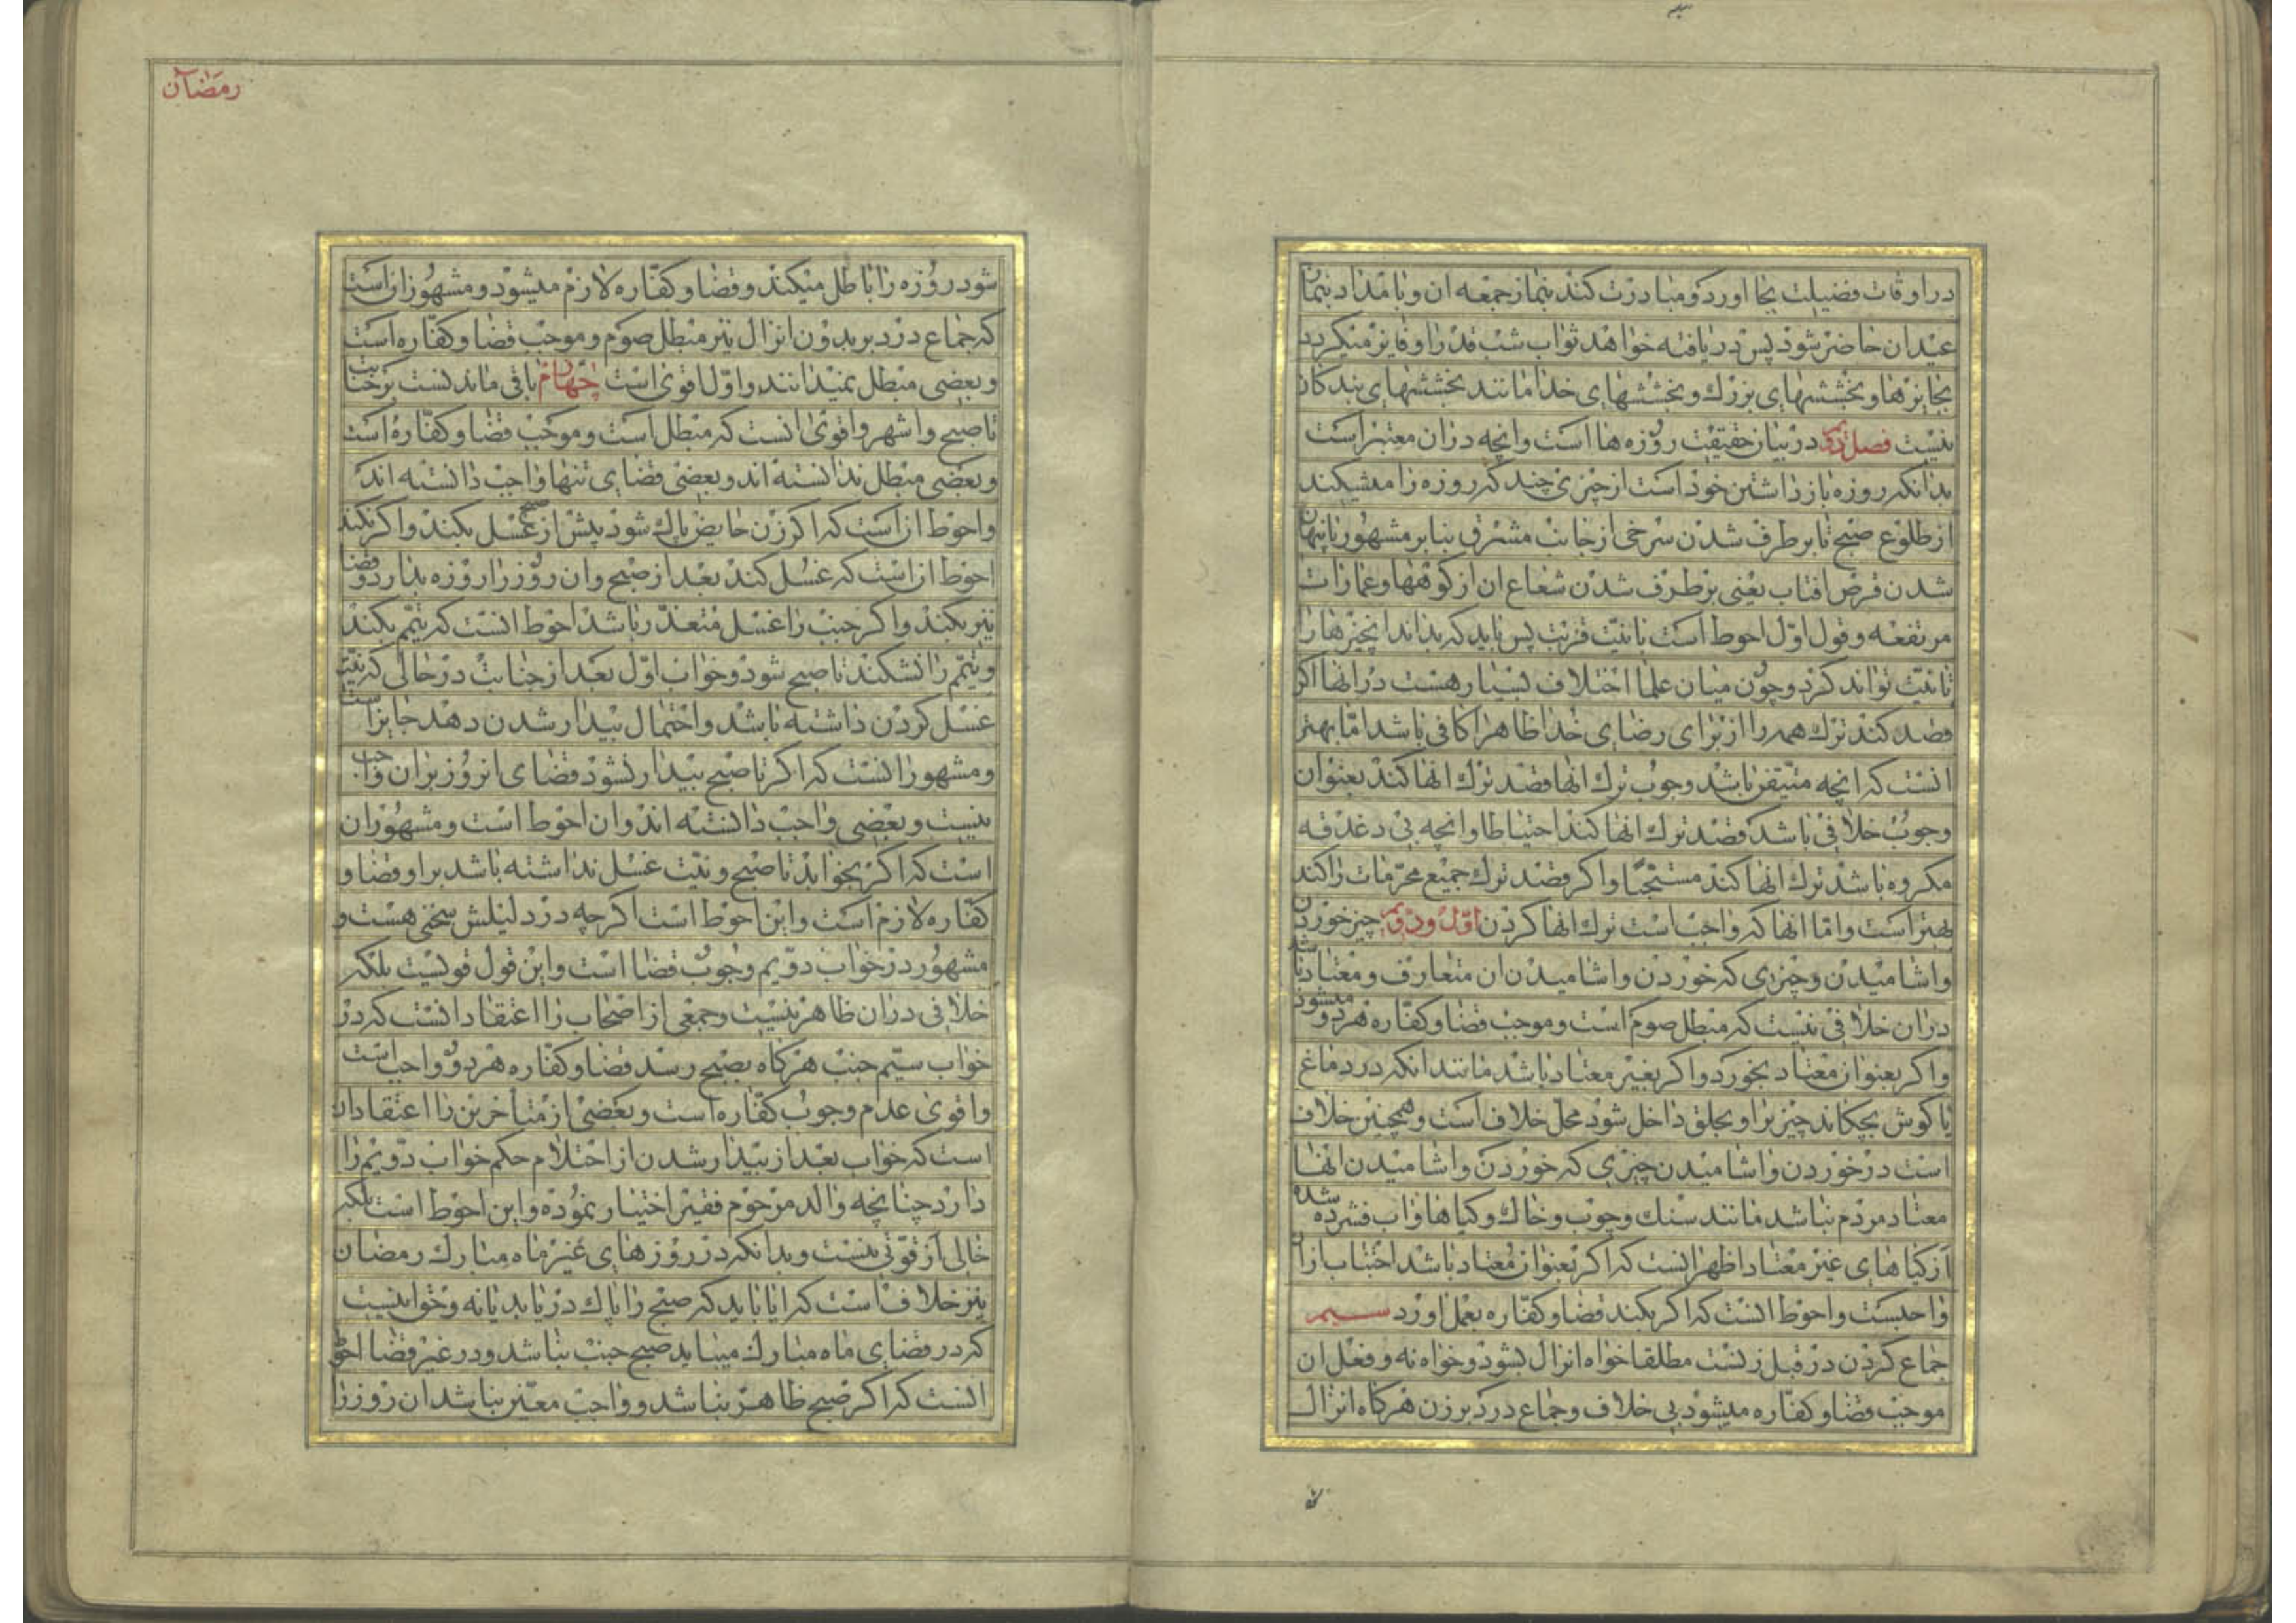 در اوقات فضیلت بجا اورد و مبادرت کند بنماز جمعه ان و بامداد بنماز
عید ان حاضر شود پس دریافته خواهد ثواب شب قدر را و فایز میکردد
بجایزها و بخششهای بزرك و بخششهای خدا مانند بخششهای بندکان
نیست فصل دویم در بیان حقیقت روزه ها است وانچه در ان معتبر است
بدانکه روزه باز داشتن خود است از چیزی چند که روزه را میشکند
از طلوع صبح تا بر طرف شدن سرخی از جانب مشرق بنا بر مشهور یا پنهان
شدن قرص افتاب یعنی بر طرف شدن شعاع ان از کوهها و عمارات
مرتفعه و قول اوّل احوط است با نیّت قربت پس باید که بداند انچیزها را
تا نیّت تواند کرد و چون میان علما اختلاف بسیار هست در انها اکر
قصد کند ترك همه را از برای رضای خدا ظاهرا کافی باشد امّا بهتر
انست که انچه متیقن باشد وجوب ترك انها قصد ترك انها کند بعنوان
وجوب خلافی باشد قصد ترك انها کند احتیاطا وانچه بی دغدقه
مکروه باشد ترك انها کند مستحبّا واکر قصد ترك جمیع محرّمات را کند
بهتر است وامّا انها که واجب است ترك انها کردن اوّل و دویم چیز خوردن
واشامیدن و چیزی که خوردن واشامیدن ان متعارف و معتاد باشد
در ان خلافی نیست که مبطل صوم است و موجب قضا و کفّاره هر دو میشود
واکر بعنوان معتاد بخورد واکر بغیر معتاد باشد مانند انکه در دماغ
یا کوش بچکاند چیزیرا و بحلق داخل شود محلّ خلاف است و همچنین خلاف
است در خوردن واشامیدن چیزی که خوردن واشامیدن انها
معتاد مردم نباشد مانند سنك و چوب و خاك و کیاها واب فشرده شده
از کیاهای غیر معتاد اظهر انست که اکر بعنوان معتاد باشد اجتناب از ان
واجبست واحوط انست که اکر بکند قضا و کفّاره بعمل اورد سیم
جماع کردن در قبل زنست مطلقا خواه انزال بشود و خواه نه و فعل ان
موجب قضا و کفّاره میشود بی خلاف و جماع در دبر زن هرکاه انزال
رمضان
شود روزه را باطل میکند و قضا و کفّاره لازم میشود و مشهور ان است
که جماع در دبر بدون انزال نیز مبطل صوم و موجب قضا و کفّاره است
و بعضی مبطل نمیدانند واوّل اقوی است چهارم باقی ماندنست بر جنابت
تا صبح واشهر واقوی انست که مبطل است و موجب قضا و کفّاره است
و بعضی مبطل ندانسته اند و بعضی قضای تنها واجب دانسته اند
واحوط ان است که اکر زن حایض پاك شود پیش از صبح غسل بکند واکر نکند
احوط ان است که غسل کند بعد از صبح وان روز را روزه بدارد و قضا
نیز بکند واکر جنب را غسل متعذّر باشد احوط انست که تیمّم بکند
و تیمّم را نشکند تا صبح شود و خواب اوّل بعد از جنابت در حالی که نیّت
غسل کردن داشته باشد واحتمال بیدار شدن دهد جایز است
و مشهور انست که اکر تا صبح بیدار نشود قضای انروز بران واجب
نیست و بعضی واجب دانسته اند وان احوط است و مشهور ان
است که اکر بخوابد تا صبح و نیّت غسل نداشته باشد بر او قضا و
کفّاره لازم است واین احوط است اکرچه در دلیلش سخنی هست و
مشهور در خواب دوّیم وجوب قضا است واین قول قویست بلکه
خلافی در ان ظاهر نیست و جمعی از اصحاب را اعتقاد انست که در
خواب سیّم جنب هرکاه بصبح رسد قضا و کفّاره هر دو واجب است
واقوی عدم وجوب کفّاره است و بعضی از متأخرین را اعتقاد ان
است که خواب بعد از بیدار شدن از احتلام حکم خواب دوّیم را
دارد چنانچه والد مرحوم فقیر اختیار نموده واین احوط است بلکه
خالی از قوّتی نیست و بدانکه در روزهای غیر ماه مبارك رمضان
نیز خلاف است که ایا باید که صبح را پاك دریابد یا نه و خوابنیست
که در قضای ماه مبارك میباید صبح جنب نباشد و در غیر قضا احوط
انست که اکر صبح ظاهر نباشد و واجب معیّن نباشد ان روز را